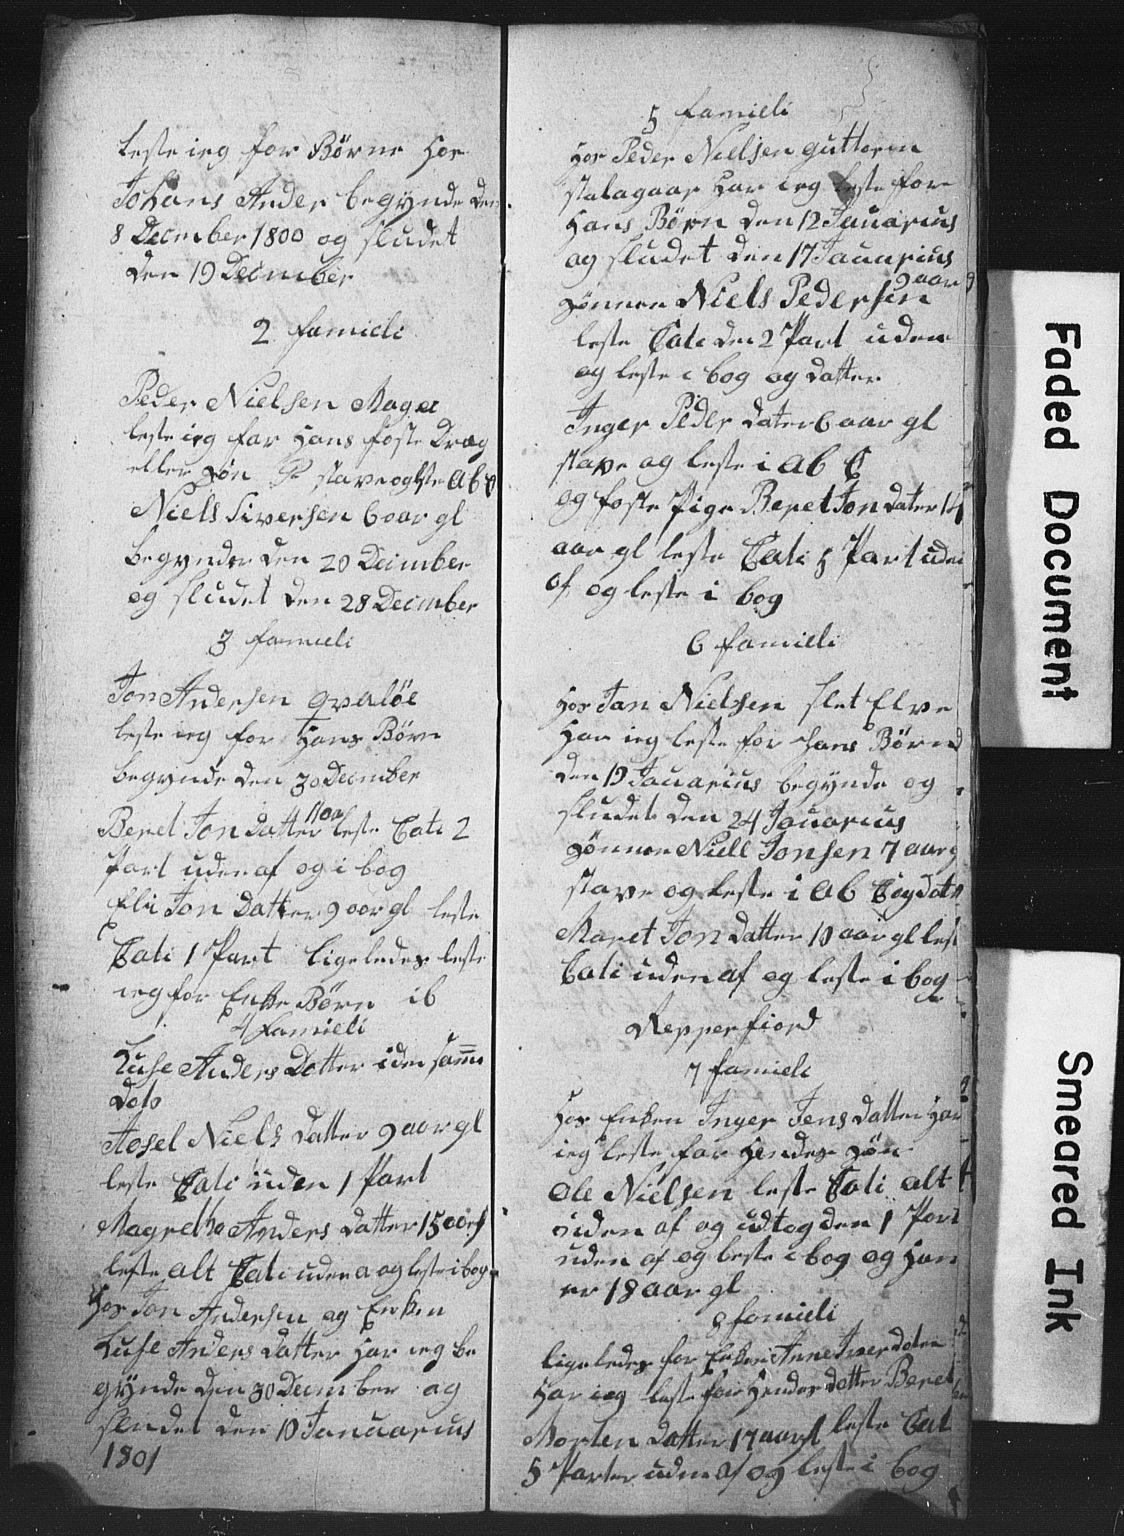 leste ieg for Børne Hos
Johans Ander begynde den
8 December 1800 og sludet
den 19 December
2 familie
Peder Nielsen Mager
leste ieg for Hans foste Dræg
eller søn stave og leste A b C
Niels Siversen 6 aar gl
begynder den 20 December
og sludet den 28 December
3 familie
Jon Andersen qvaløe
leste ieg for Hans Børn
begynde den 30 December
Beret Jon datter 11 aar leste Cati 2
Part uden af og i bog
Eli Jon Datter 9 aar gl leste
Cati 1 Part ligeledes leste
ieg for Enke Børn ib
4 familie
Luse Anders Datter i den samme
Dato
Aosel Niels datter 9 aar gl
leste Cati uden 1 Part
Magretha Anders datter 15 aar gl
leste alt Cati uden a og leste i bog
Hos Jon Andersen og Enken
Luse Anders datter Har ieg be
gynde den 30 December og
sludet den 10 Januarius
1801
5 familie
Hos Peder Nielsen gutteren
stalagaar Har ieg leste for
Hans Børn den 12 Januarius
og sludet den 17 Januarius
sønnen Niels Pedersen 9 aar
leste Cati den 2 Part uden
og leste i bog og datter
Inger Peder dater 6 aar gl
stave og leste i Ab C
og foste Pige Beret Jon dater 14
aar gl leste Cati 5 Part uden
af og leste i bog
6 familie
Hos Jan Nielsen slet Elve
Har ieg leste for Hans Børn
den 19 Januarius begynde og
sludet den 24 Januarius
sønnen Niell Jonsen 7 aar g
stave og leste i Ab C og date
Maret Jon datter 10 aar gl lest
Cati uden af og leste i bog
Repperfiord
7 familie
Hos Enken Inger Jens datter Har
ieg leste for Hendes søn
Ole Nielsen leste Cati alt
uden af og udtog den 1 Part
uden af og leste i bog og Han
er 18 aar gl
8 familie
ligeledes for Enken Anne Iver daten
Har ieg leste for Hendes datter Beret
Morten datter 17 aar gl leste Cat
5 Parter uden af og leste i bog
Faded Document
Smeared Ink